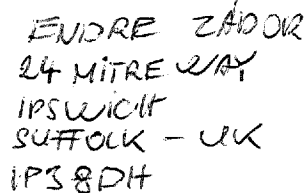 ENDRE ZÁDOR
24 MITRE WAY
IPSWICH
SUFFOLK - UK
IP3 8DH